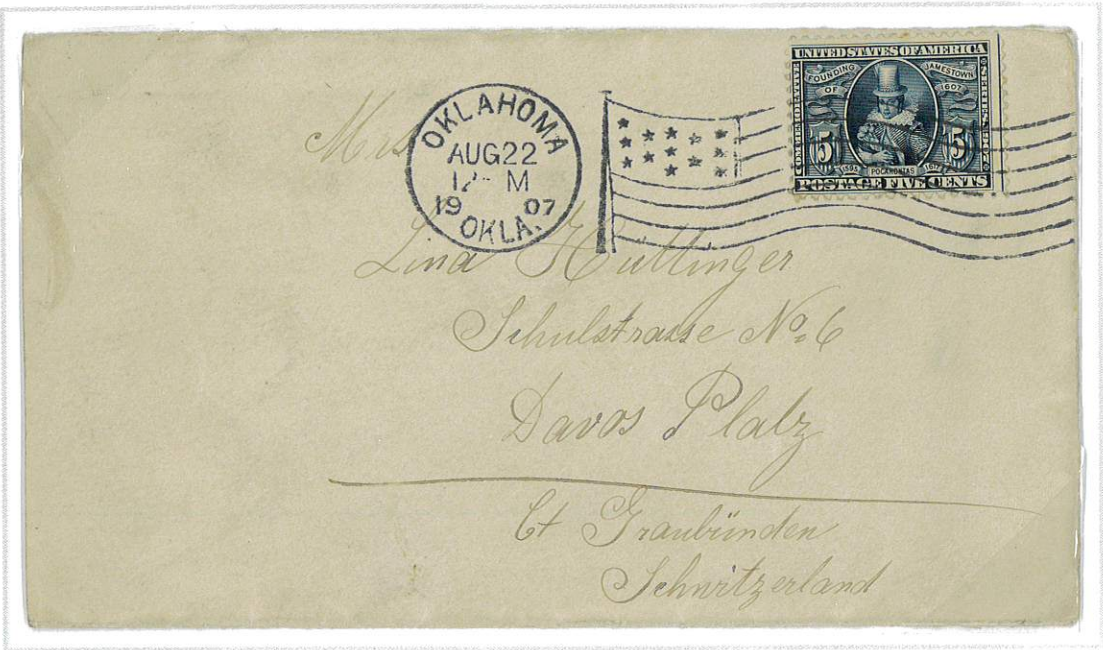 UNITED STATES OF AMERICA
FOUNDING OF JAMESTOWN 1607
5 5
1595 POCAHONTAS
POSTAGE FIVE CENTS
OKLAHOMA
AUG 22
12- M
1907
OKLA.
Mrs
Lina Hüttinger
Schulstrasse No. 6
Davos Platz
Ct Graubünden
Schwitzerland